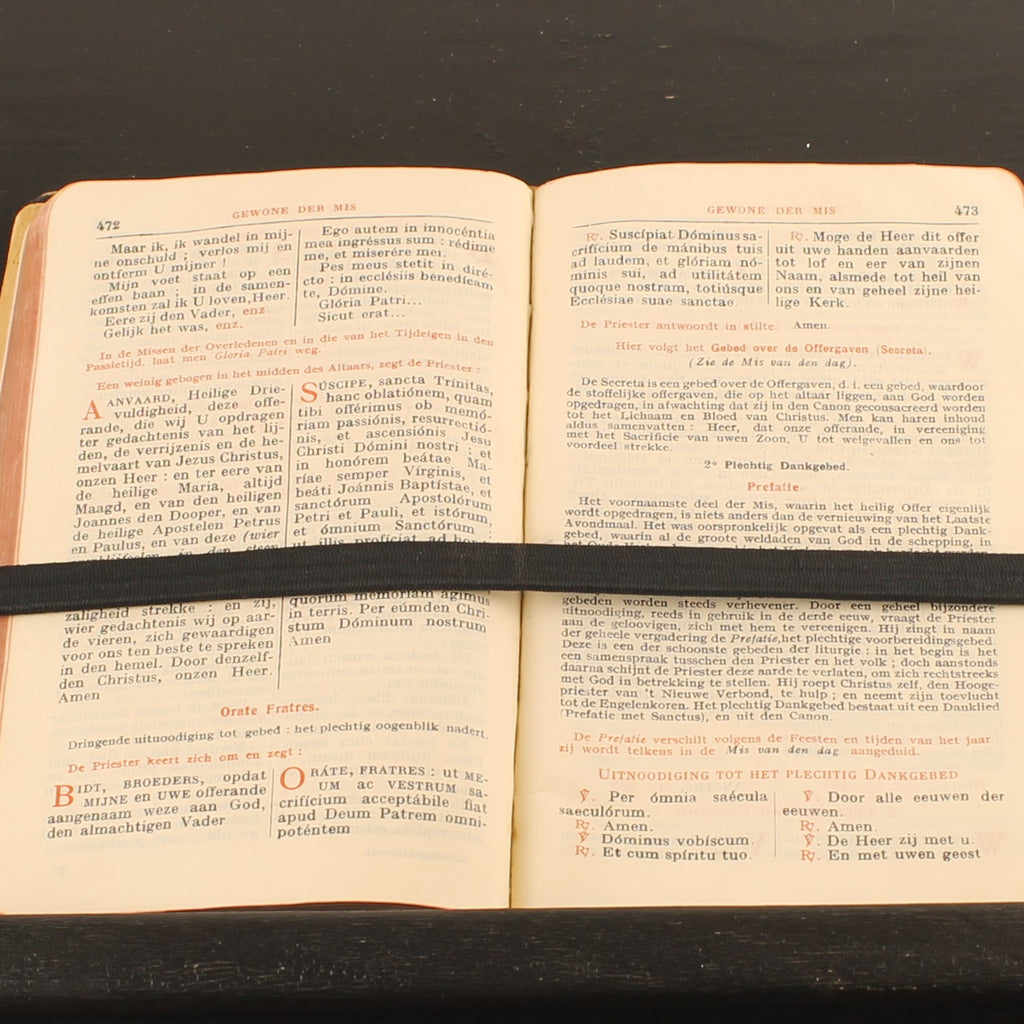 472
GEWONE DER MIS
Maar ik, ik wandel in mij-
ne onschuld ; verlos mij en
ontferm U mijner !
Mijn voet staat op een
effen baan ; in de samen-
komsten zal ik U loven, Heer.
Eere zij den Vader, enz
Gelijk het was, enz.
Ego autem in innocéntia
mea ingréssus sum : rédime
me, et miserére mei.
Pes meus stetit in diré-
cto : in ecclésiis benedícam
te, Dómine.
Glória Patri...
Sicut erat...
In de Missen der Overledenen en in die van het Tijdeigen in den
Passietijd, laat men Gloria Patri weg.
Een weinig gebogen in het midden des Altaars, zegt de Priester :
AANVAARD, Heilige Drie-
vuldigheid, deze offe-
rande, die wij U opdragen
ter gedachtenis van het lij-
den, de verrijzenis en de he-
melvaart van Jezus Christus,
onzen Heer : en ter eere van
de heilige Maria, altijd
Maagd, en van den heiligen
Joannes den Dooper, en van
de heilige Apostelen Petrus
en Paulus, en van deze (wier
in den steen
zaligheid strekke : en zij,
wier gedachtenis wij op aar-
de vieren, zich gewaardigen
voor ons ten beste te spreken
in den hemel. Door denzelf-
den Christus, onzen Heer.
Amen
SÚSCIPE, sancta Trínitas,
hanc oblatiónem, quam
tibi offérimus ob memó-
riam passiónis, resurrectió-
nis, et ascensiónis Jesu
Christi Dómini nostri : et
in honórem beátae Ma-
ríae semper Vírginis, et
beáti Joánnis Baptístae, et
sanctórum Apostolórum
Petri et Pauli, et istórum,
et ómnium Sanctórum :
ut illis profíciat ad
quorum memóriam ágimus
in terris. Per eúmden Chri-
stum Dóminum nostrum
Amen
Orate Fratres.
Dringende uitnoodiging tot gebed : het plechtig oogenblik nadert.
De Priester keert zich om en zegt :
BIDT, BROEDERS, opdat
MIJNE en UWE offerande
aangenaam weze aan God,
den almachtigen Vader
ORÁTE, FRATRES : ut ME-
UM ac VESTRUM sa-
crifícium acceptábile fiat
apud Deum Patrem omni-
poténtem
GEWONE DER MIS
473
℟. Suscípiat Dóminus sa-
crifícium de mánibus tuis
ad laudem, et glóriam nó-
minis sui, ad utilitátem
quoque nostram, totiúsque
Ecclésiae suae sanctae.
℟. Moge de Heer dit offer
uit uwe handen aanvaarden
tot lof en eer van zijnen
Naam, alsmede tot heil van
ons en van geheel zijne hei-
lige Kerk.
De Priester antwoordt in stilte. Amen.
Hier volgt het Gebed over de Offergaven (Secreta).
(Zie de Mis van den dag).
De Secreta is een gebed over de Offergaven, d. i. een gebed, waardoor
de stoffelijke offergaven, die op het altaar liggen, aan God worden
opgedragen, in afwachting dat zij in den Canon geconsacreerd worden
tot het Lichaam en Bloed van Christus. Men kan haren inhoud
aldus samenvatten : Heer, dat onze offerande, in vereeniging
met het Sacrificie van uwen Zoon, U tot welgevallen en ons tot
voordeel strekke.
2° Plechtig Dankgebed.
Prefatie.
Het voornaamste deel der Mis, waarin het heilig Offer eigenlijk
wordt opgedragen, is niets anders dan de vernieuwing van het Laatste
Avondmaal. Het was oorspronkelijk opgevat als een plechtig Dank-
gebed, waarin al de groote weldaden van God in de schepping, in
gebeden worden steeds verhevener. Door een geheel bijzondere
uitnoodiging, reeds in gebruik in de derde eeuw, vraagt de Priester
aan de geloovigen, zich met hem te vereenigen. Hij zingt in naam
der geheele vergadering de Prefatie, het plechtige voorbereidingsgebed.
Deze is een der schoonste gebeden der liturgie : in het begin is het
een samenspraak tusschen den Priester en het volk ; doch aanstonds
daarna schijnt de Priester deze aarde te verlaten, om zich rechtstreeks
met God in betrekking te stellen. Hij roept Christus zelf, den Hooge-
priester van 't Nieuwe Verbond, te hulp ; en neemt zijn toevlucht
tot de Engelenkoren. Het plechtig Dankgebed bestaat uit een Danklied
(Prefatie met Sanctus), en uit den Canon.
De Prefatie verschilt volgens de Feesten en tijden van het jaar
zij wordt telkens in de Mis van den dag aangeduid.
UITNOODIGING TOT HET PLECHTIG DANKGEBED
℣. Per ómnia saécula
saeculórum.
℟. Amen.
℣. Dóminus vobíscum.
℟. Et cum spíritu tuo.
℣. Door alle eeuwen der
eeuwen.
℟. Amen.
℣. De Heer zij met u.
℟. En met uwen geest